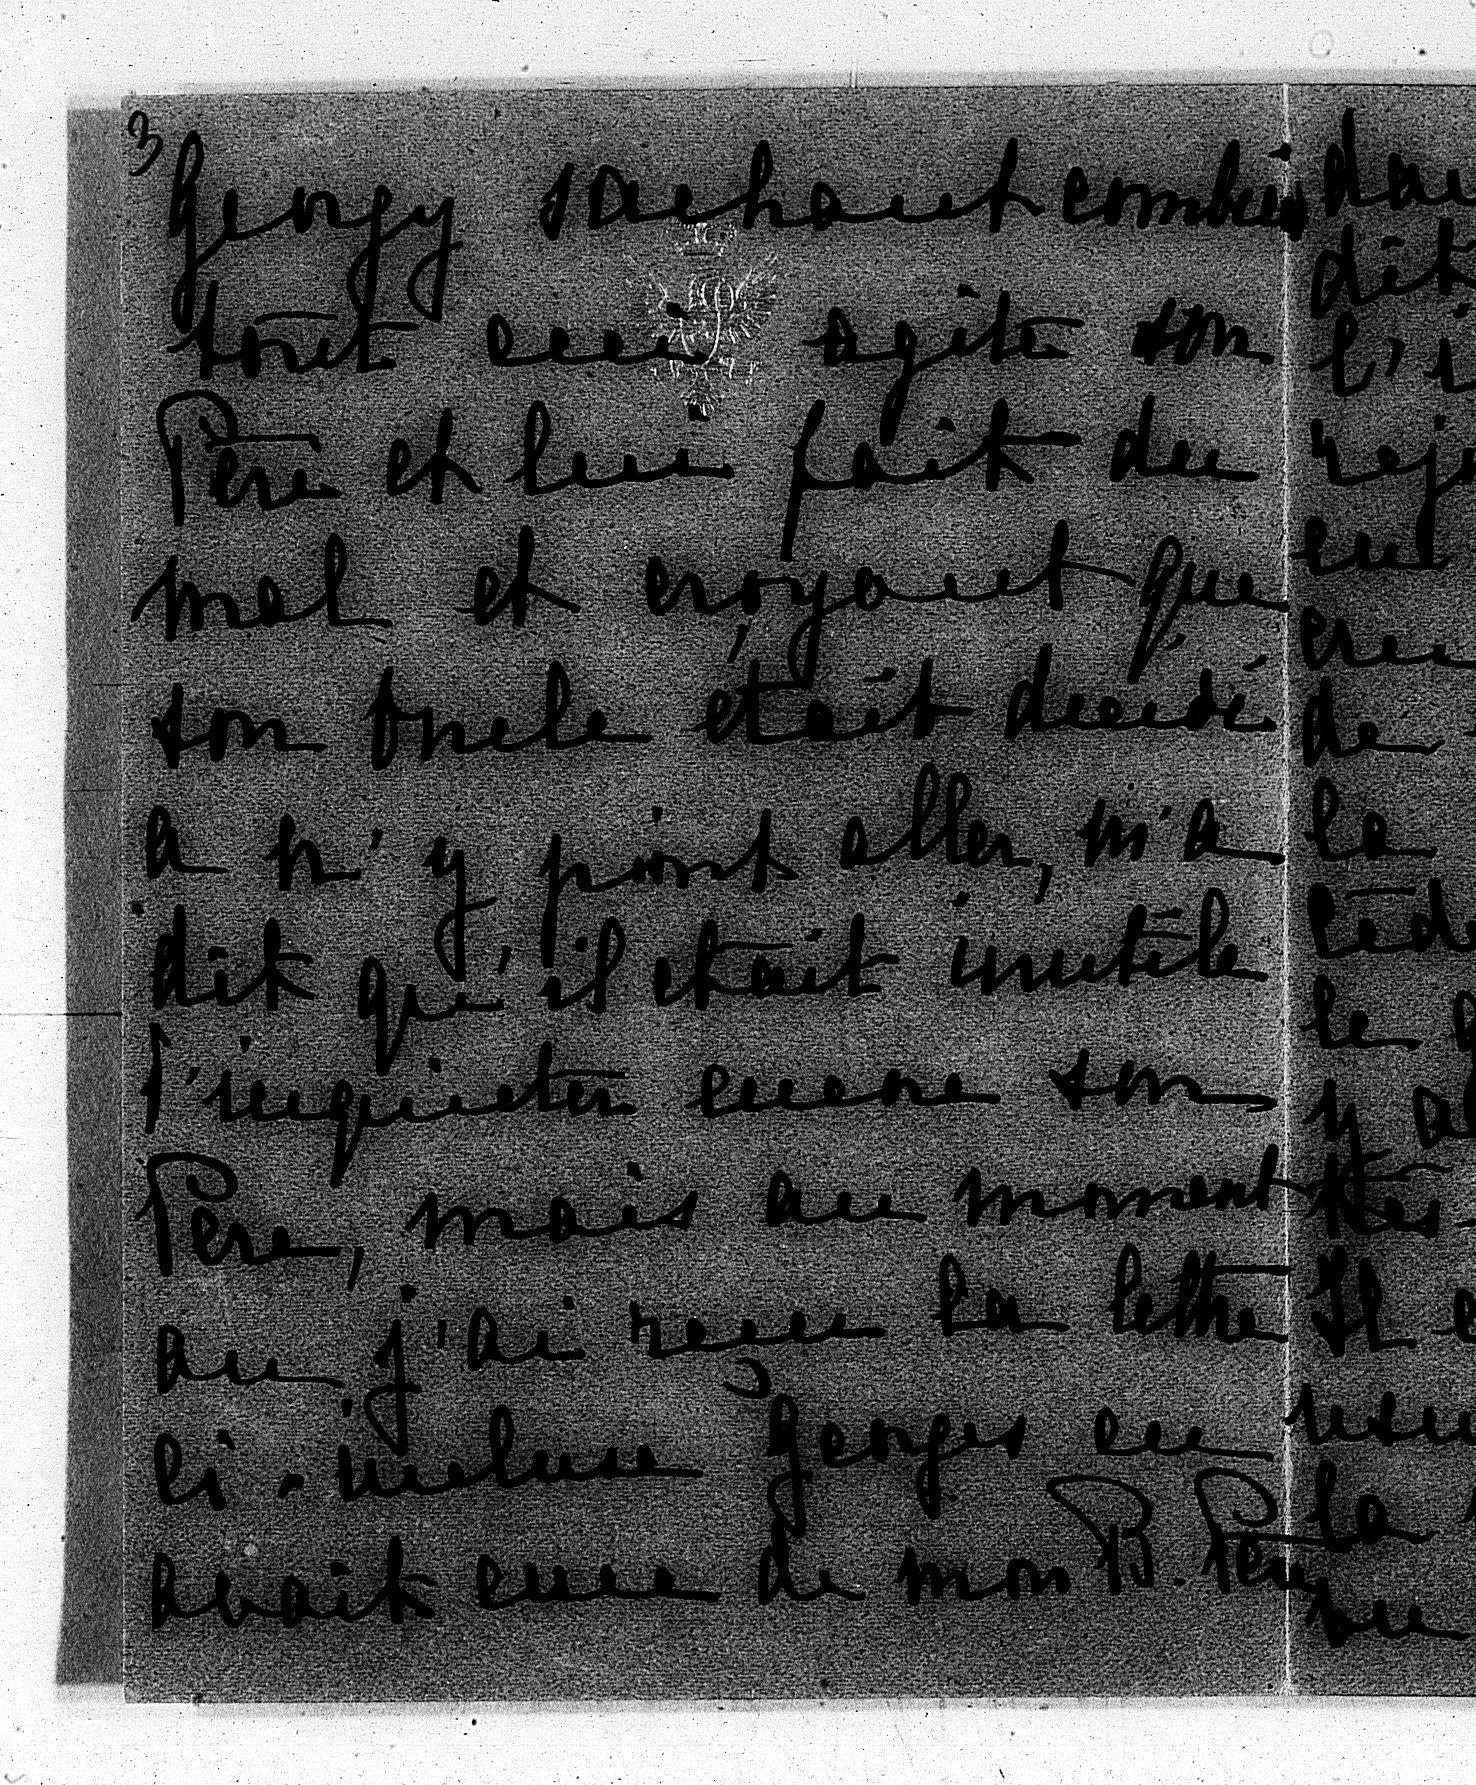 3
Georgy sachant combien
tout ceci agite son
Père et lui fait du
mal et croyant que
son Oncle était decidé
a n'y point aller, m'a
dit qu'il etait inutile
d'inquieter encore son
Pere, mais au moment
ou j'ai reçu la lettre
ci-incluse Georges en
avait eue de mon B. Pere
dit
l'i
de
la
le
Il
la